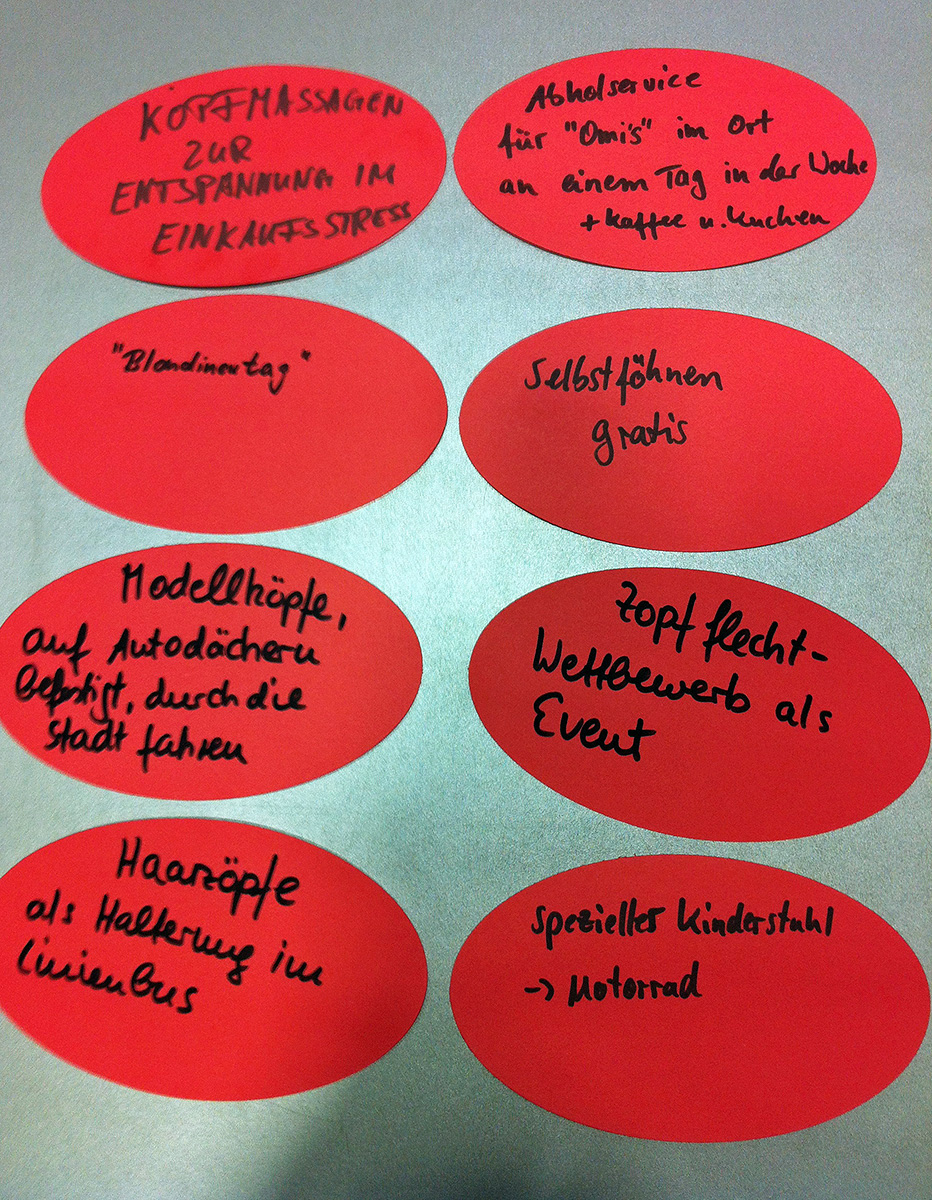 KOPFMASSAGEN
ZUR
ENTSPANNUNG IM
EINKAUFSSTRESS
Abholservice
für "Omi's" im Ort
an einem Tag in der Woche
+ Kaffee u. Kuchen
"Blondinentag"
Selbstföhnen
gratis
Modellköpfe,
auf Autodächern
befestigt, durch die
Stadt fahren
Zopfflecht-
Wettbewerb als
Event
Haarzöpfe
als Halterung im
Linienbus
spezieller Kinderstuhl
-> Motorrad